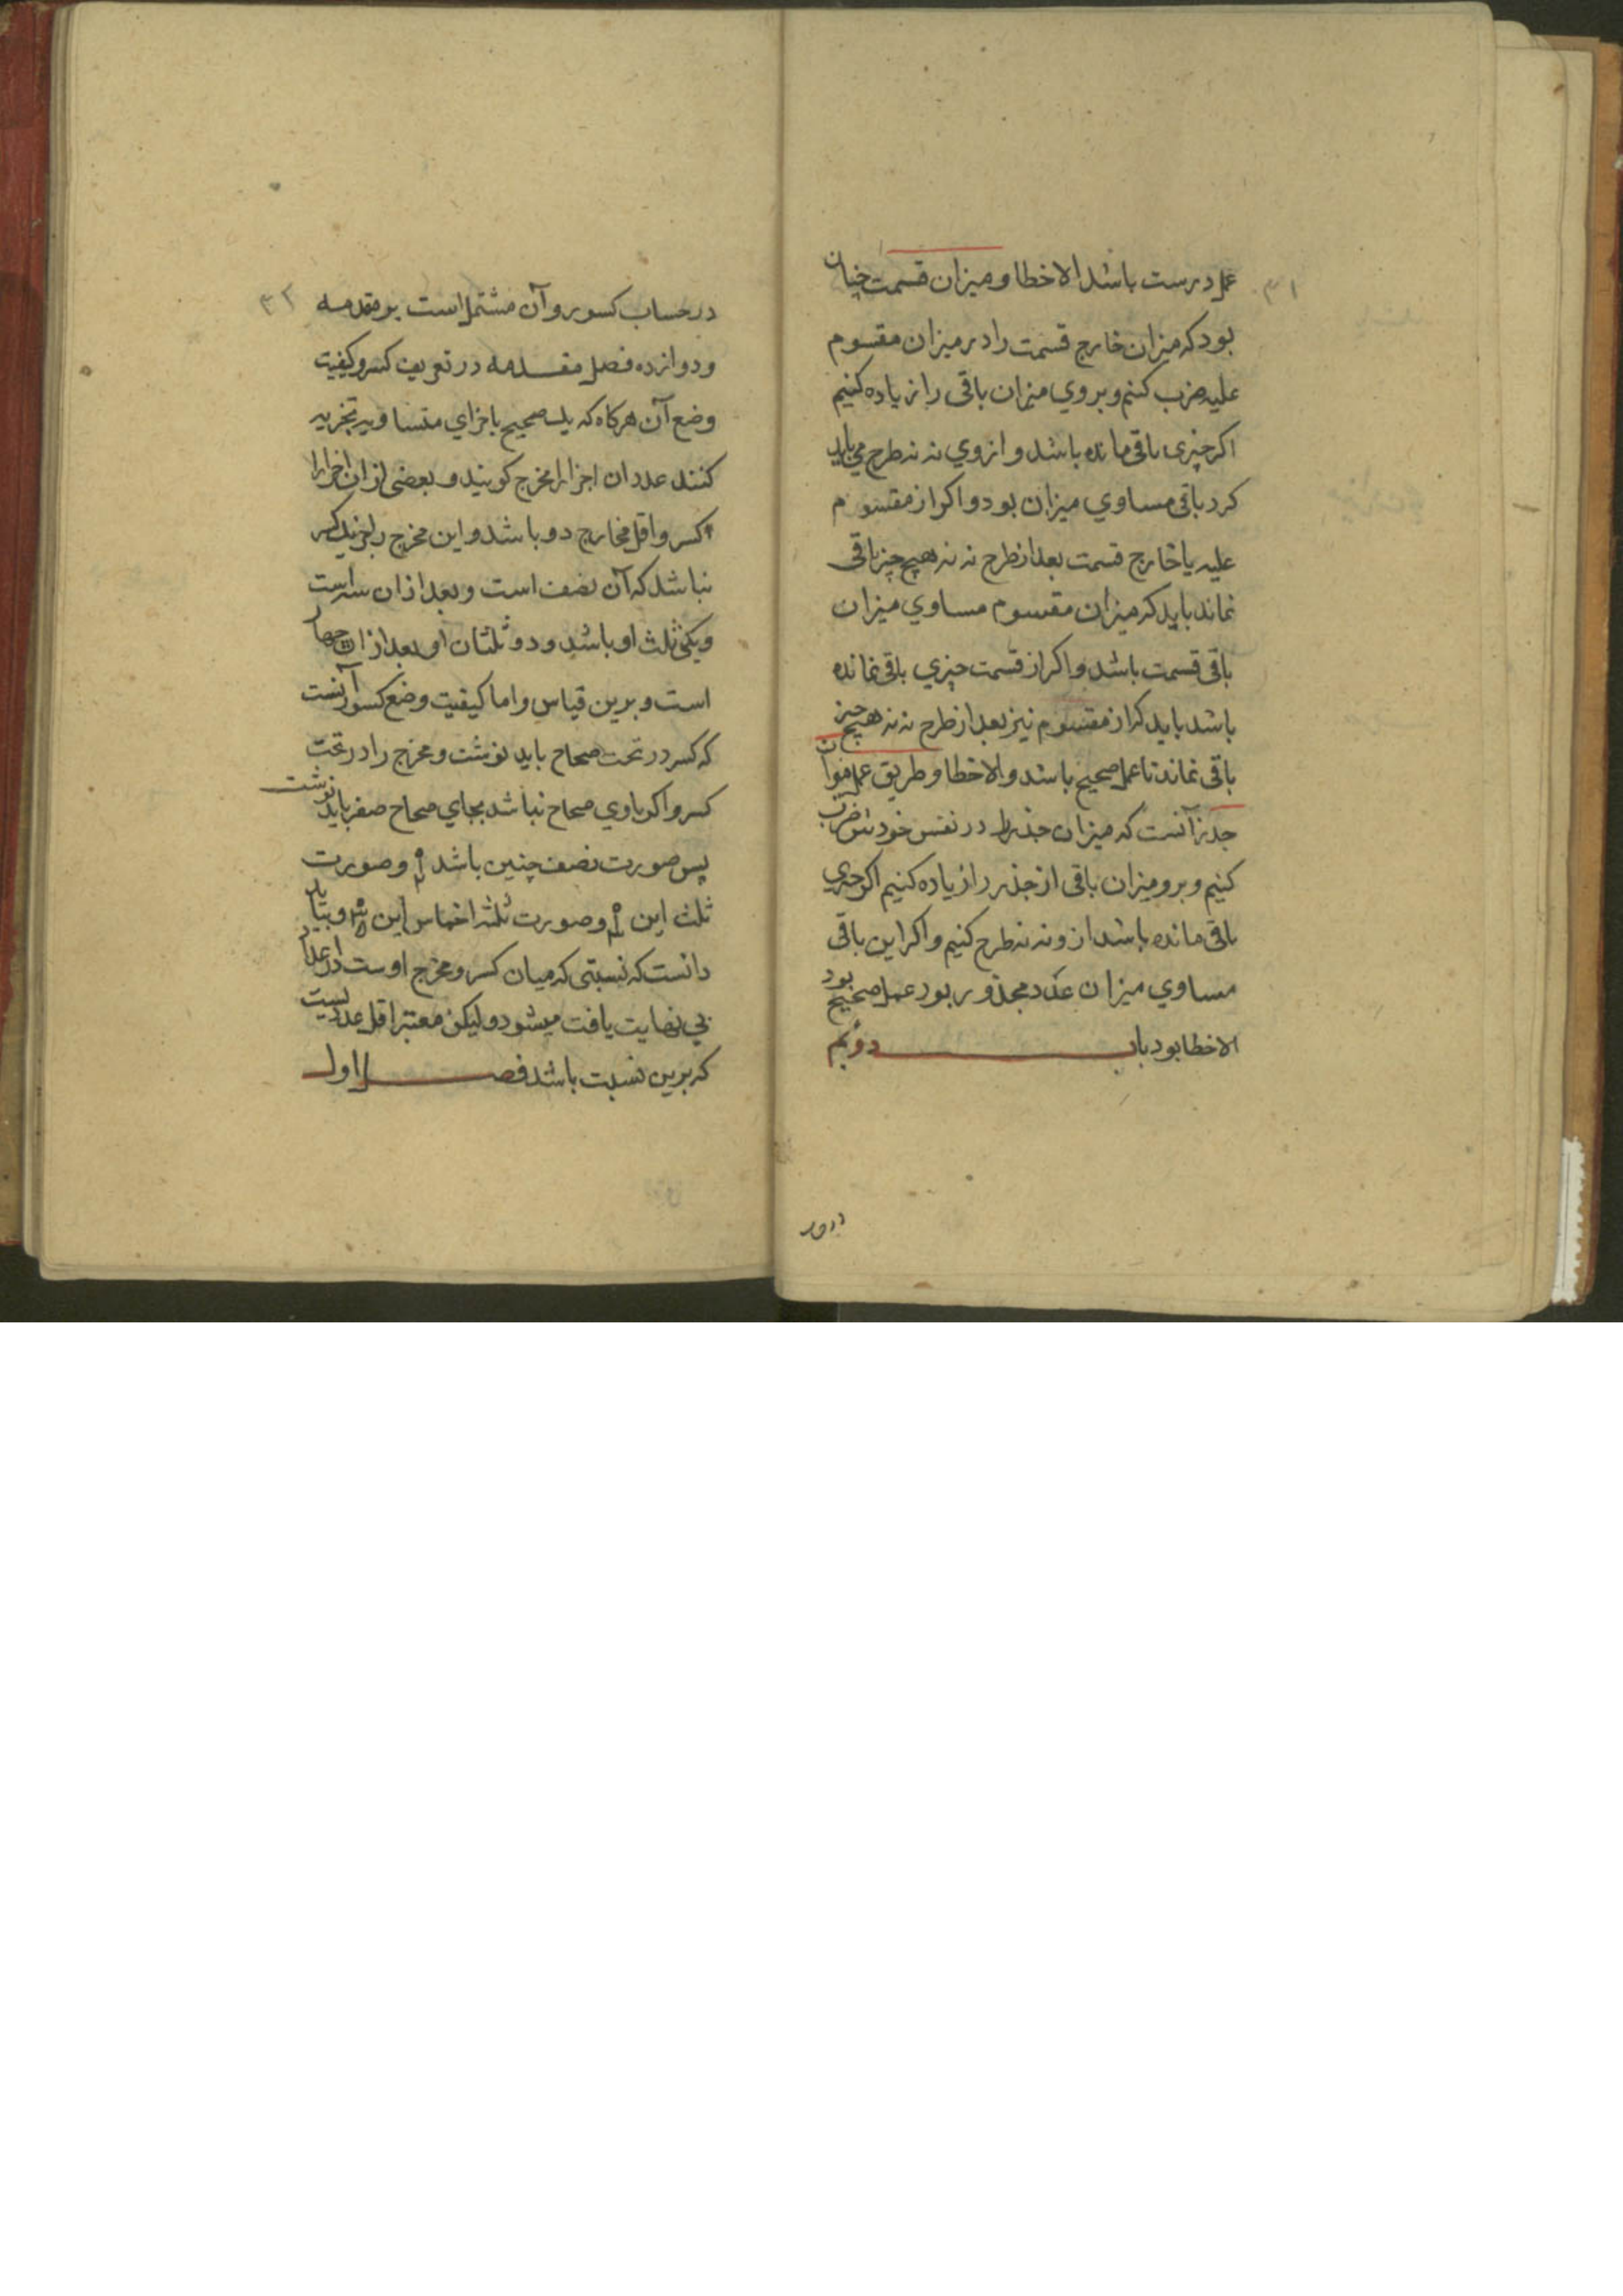 ۳۱
عمل درست باشد الا خطا و میزان قسمت چنان
بود که میزان خارج قسمت را در میزان مقسوم
علیه ضرب کنیم و بروي میزان باقی را زیاده کنیم
اکر چیزی باقی مانده باشد و از وي نه نه طرح می باید
کرد باقی مساوي میزان بود و اکر از مقسوم
علیه یا خارج قسمت بعد از طرح نه نه هیچ چیز باقی
نماند باید که میزان مقسوم مساوي میزان
باقی قسمت باشد و اکر از قسمت چیزي باقی نمانده
باشد باید که از مقسوم نیز بعد از طرح نه نه هیچ چیز
باقی نماند تا عمل صحیح باشد والا خطا و طریق عمل میزان
جذر آنست که میزان جذر را در نفس خودش ضرب
کنیم و برو میزان باقی از جذر را زیاده کنیم اکر چیزي
باقی مانده باشد ازو نه نه طرح کنیم و اکر این باقی
مساوي میزان عدد مجذور بود عمل صحیح بود
الا خطا بود باب دوئم
در
۳۲
در حساب کسور و آن مشتمل است بر مقدمه
و دوازده فصل مقدمه در تعریف کسر و کیفیت
وضع آن هرکاه که یک صحیح باجزاي متساویه تجزیه
کنند عدد ان اجزا را مخرج کویند و بعضی از ان اجزا را
کسر و اقل مخارج دو باشد و این مخرج را جز یک کسر
نباشد که آن نصف است و بعد از ان سه است
و یکی ثلث او باشد و دو ثلثان او بعد از ان چهار
است و برین قیاس و اما کیفیت وضع کسور آنست
که کسر در تحت صحاح باید نوشت و مخرج را در تحت
کسر و اکر باوي صحاح نباشد بجاي صحاح صفر باید نوشت
پس صورت نصف چنین باشد و صورت
ثلث این و صورت ثلثه اخماس این و بباید
دانست که نسبتی که میان کسر و مخرج اوست در اعداد
بي نهایت یافت میشود و لیکن معتبر اقل عددیست
که برین نسبت باشد فصل اول